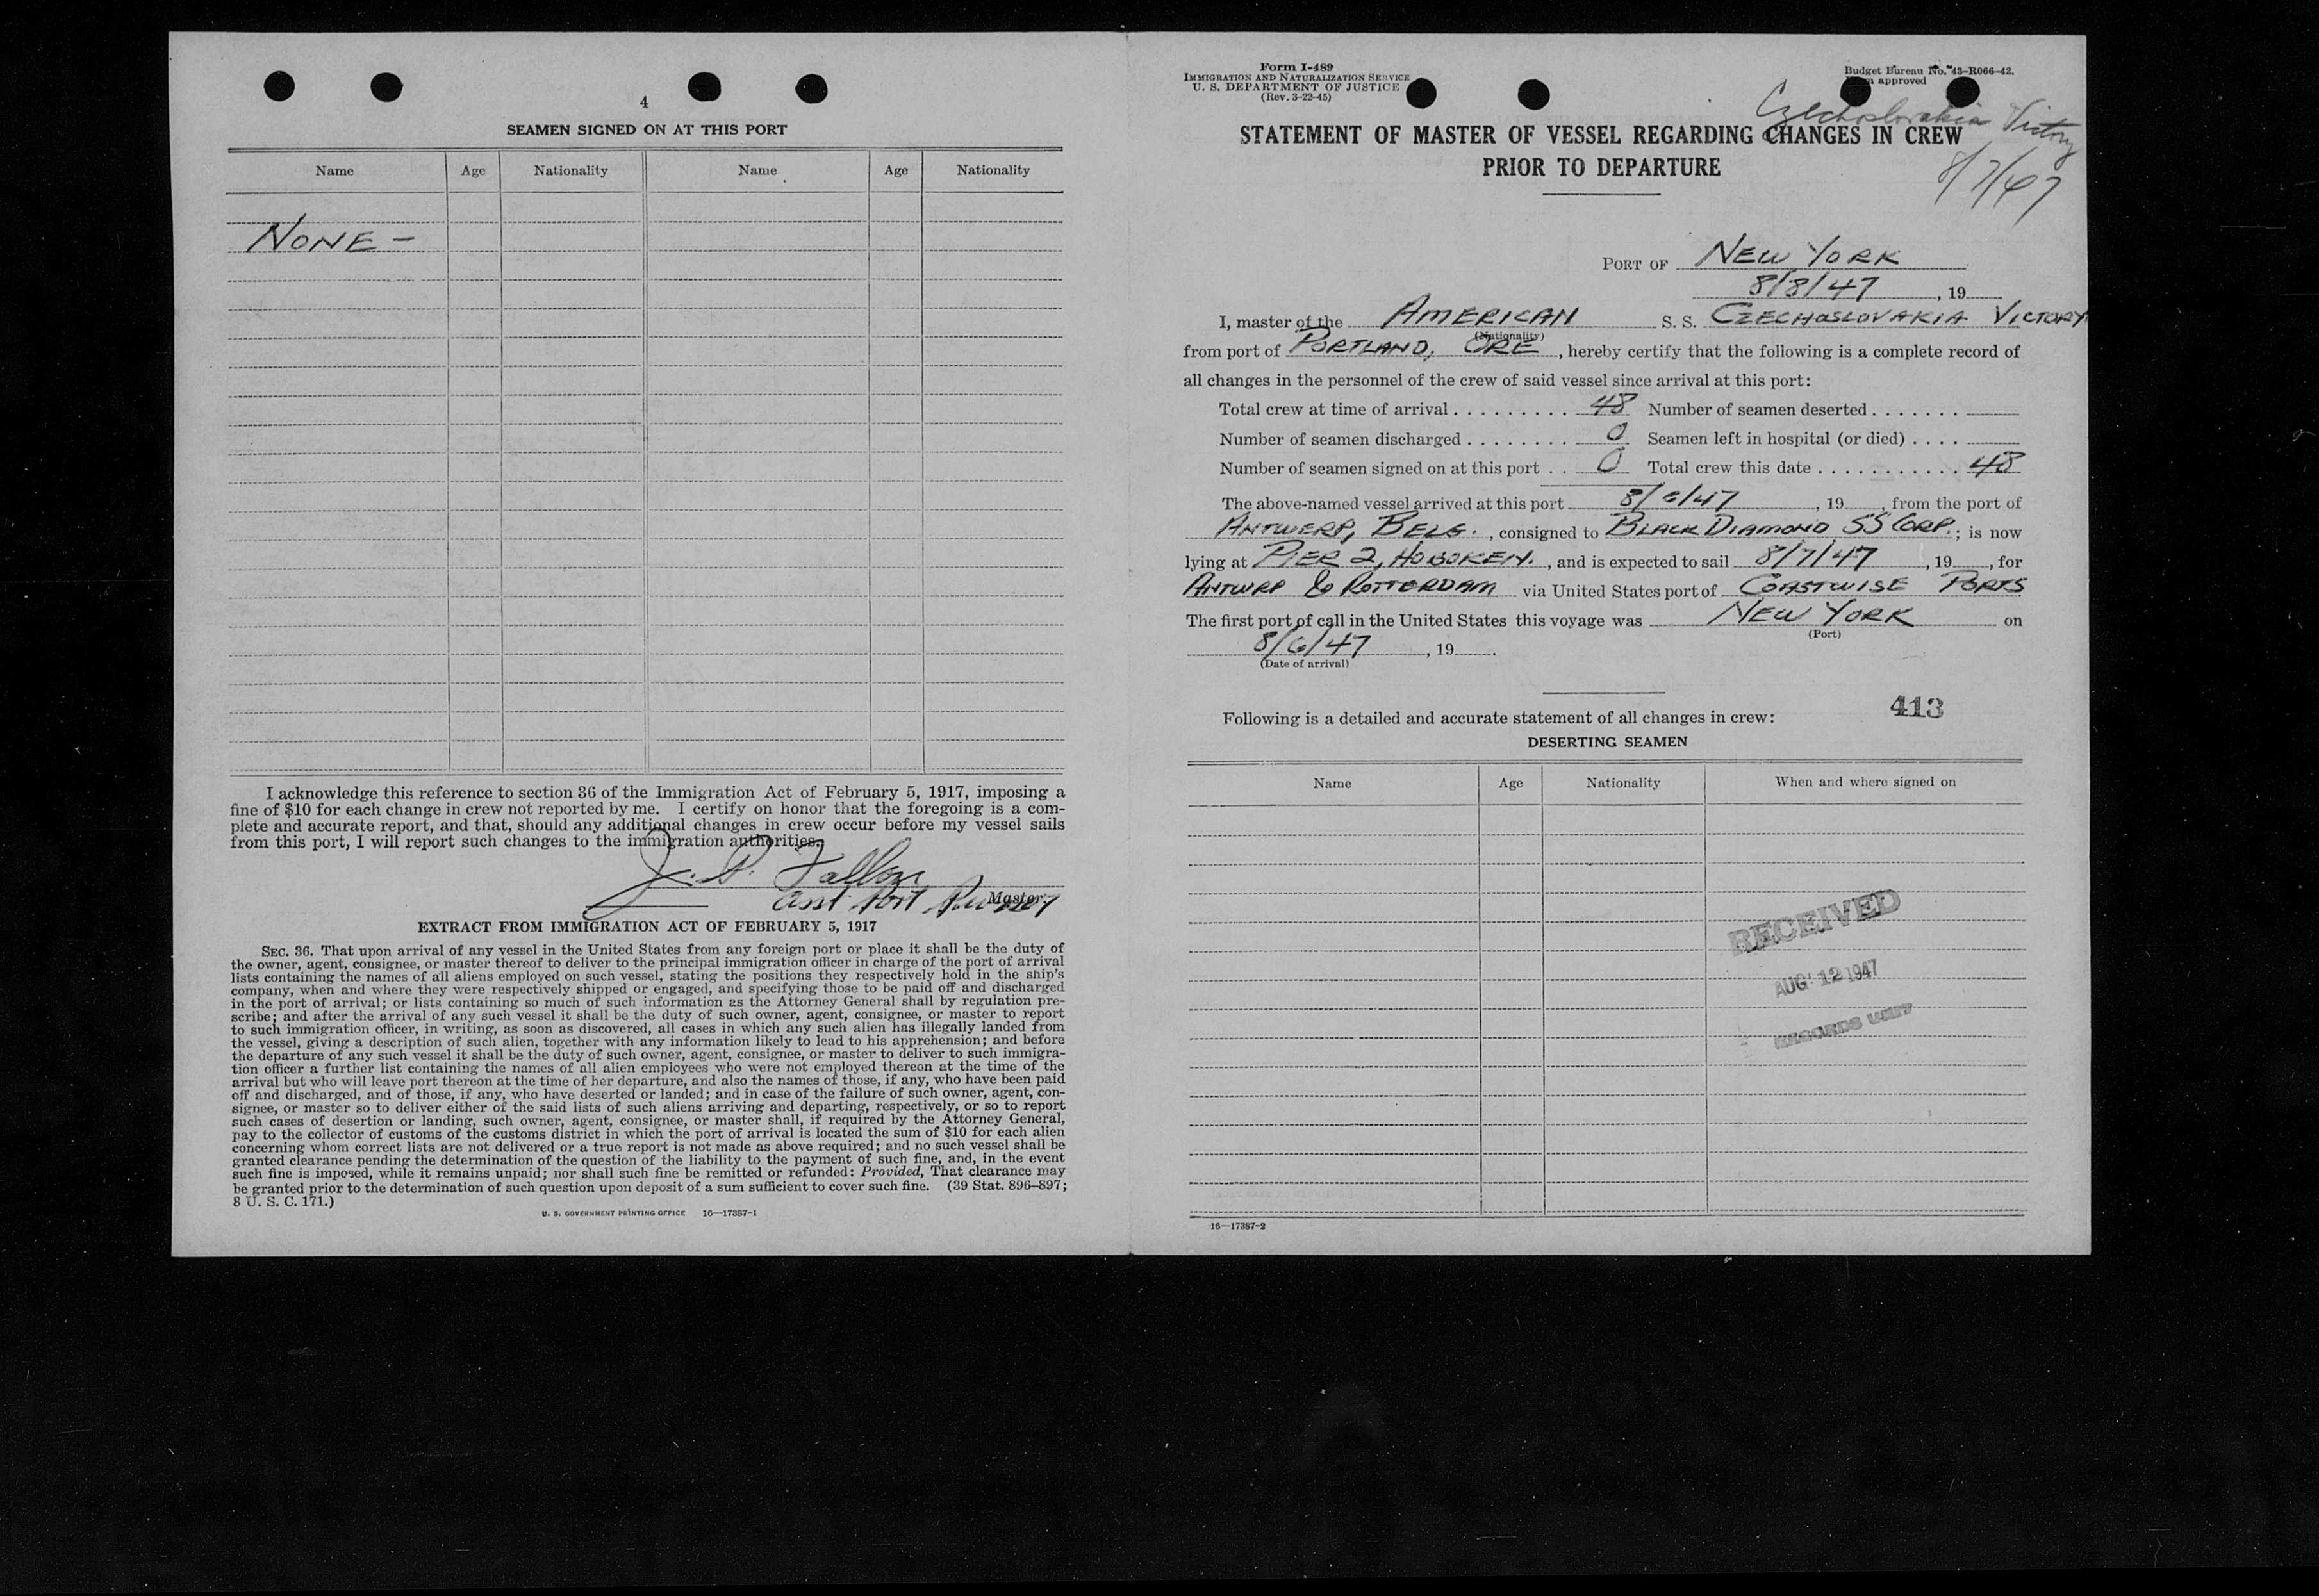 4
SEAMEN SIGNED ON AT THIS PORT
Name Age Nationality Name Age Nationality
NONE –
I acknowledge this reference to section 36 of the Immigration Act of February 5, 1917, imposing a
fine of $10 for each change in crew not reported by me. I certify on honor that the foregoing is a com-
plete and accurate report, and that, should any additional changes in crew occur before my vessel sails
from this port, I will report such changes to the immigration authorities.
J. P. Fallon
Asst Port Master.
EXTRACT FROM IMMIGRATION ACT OF FEBRUARY 5, 1917
SEC. 36. That upon arrival of any vessel in the United States from any foreign port or place it shall be the duty of
the owner, agent, consignee, or master thereof to deliver to the principal immigration officer in charge of the port of arrival
lists containing the names of all aliens employed on such vessel, stating the positions they respectively hold in the ship's
company, when and where they were respectively shipped or engaged, and specifying those to be paid off and discharged
in the port of arrival; or lists containing so much of such information as the Attorney General shall by regulation pre-
scribe; and after the arrival of any such vessel it shall be the duty of such owner, agent, consignee, or master to report
to such immigration officer, in writing, as soon as discovered, all cases in which any such alien has illegally landed from
the vessel, giving a description of such alien, together with any information likely to lead to his apprehension; and before
the departure of any such vessel it shall be the duty of such owner, agent, consignee, or master to deliver to such immigra-
tion officer a further list containing the names of all alien employees who were not employed thereon at the time of the
arrival but who will leave port thereon at the time of her departure, and also the names of those, if any, who have been paid
off and discharged, and of those, if any, who have deserted or landed; and in case of the failure of such owner, agent, con-
signee, or master so to deliver either of the said lists of such aliens arriving and departing, respectively, or so to report
such cases of desertion or landing, such owner, agent, consignee, or master shall, if required by the Attorney General,
pay to the collector of customs of the customs district in which the port of arrival is located the sum of $10 for each alien
concerning whom correct lists are not delivered or a true report is not made as above required; and no such vessel shall be
granted clearance pending the determination of the question of the liability to the payment of such fine, and, in the event
such fine is imposed, while it remains unpaid; nor shall such fine be remitted or refunded: Provided, That clearance may
be granted prior to the determination of such question upon deposit of a sum sufficient to cover such fine. (39 Stat. 896–897;
8 U. S. C. 171.)
U. S. GOVERNMENT PRINTING OFFICE 16—17387-1
Form I-489
IMMIGRATION AND NATURALIZATION SERVICE
U. S. DEPARTMENT OF JUSTICE
(Rev. 3-22-45)
Budget Bureau No. 43-R066-42.
approved
Czechoslovakia Victory
8/7/47
STATEMENT OF MASTER OF VESSEL REGARDING CHANGES IN CREW
PRIOR TO DEPARTURE
PORT OF NEW YORK
8/8/47, 19
I, master of the AMERICAN S. S. CZECHOSLOVAKIA VICTORY
(Nationality)
from port of PORTLAND, ORE, hereby certify that the following is a complete record of
all changes in the personnel of the crew of said vessel since arrival at this port:
Total crew at time of arrival . . . . . . . . . 48 Number of seamen deserted . . . . . . .
Number of seamen discharged . . . . . . . . 0 Seamen left in hospital (or died) . . . .
Number of seamen signed on at this port . . 0 Total crew this date . . . . . . . . . . . 48
The above-named vessel arrived at this port 8/6/47, 19 , from the port of
ANTWERP, BELG., consigned to BLACK DIAMOND SS CORP.; is now
lying at PIER 2, HOBOKEN., and is expected to sail 8/7/47, 19 , for
ANTWRP & ROTTERDAM via United States port of COASTWISE PORTS
The first port of call in the United States this voyage was NEW YORK on
(Port)
8/6/47, 19 .
(Date of arrival)
413
Following is a detailed and accurate statement of all changes in crew:
DESERTING SEAMEN
Name Age Nationality When and where signed on
RECEIVED
AUG 12 1947
RECORDS UNIT
16—17387-2